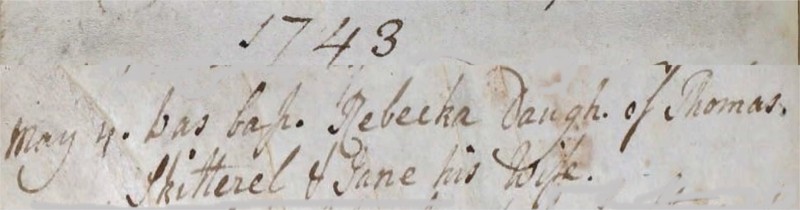 1743
May 4. Was bap. Rebecka Daugh. of Thomas
Skitterel & Jane his Wife.